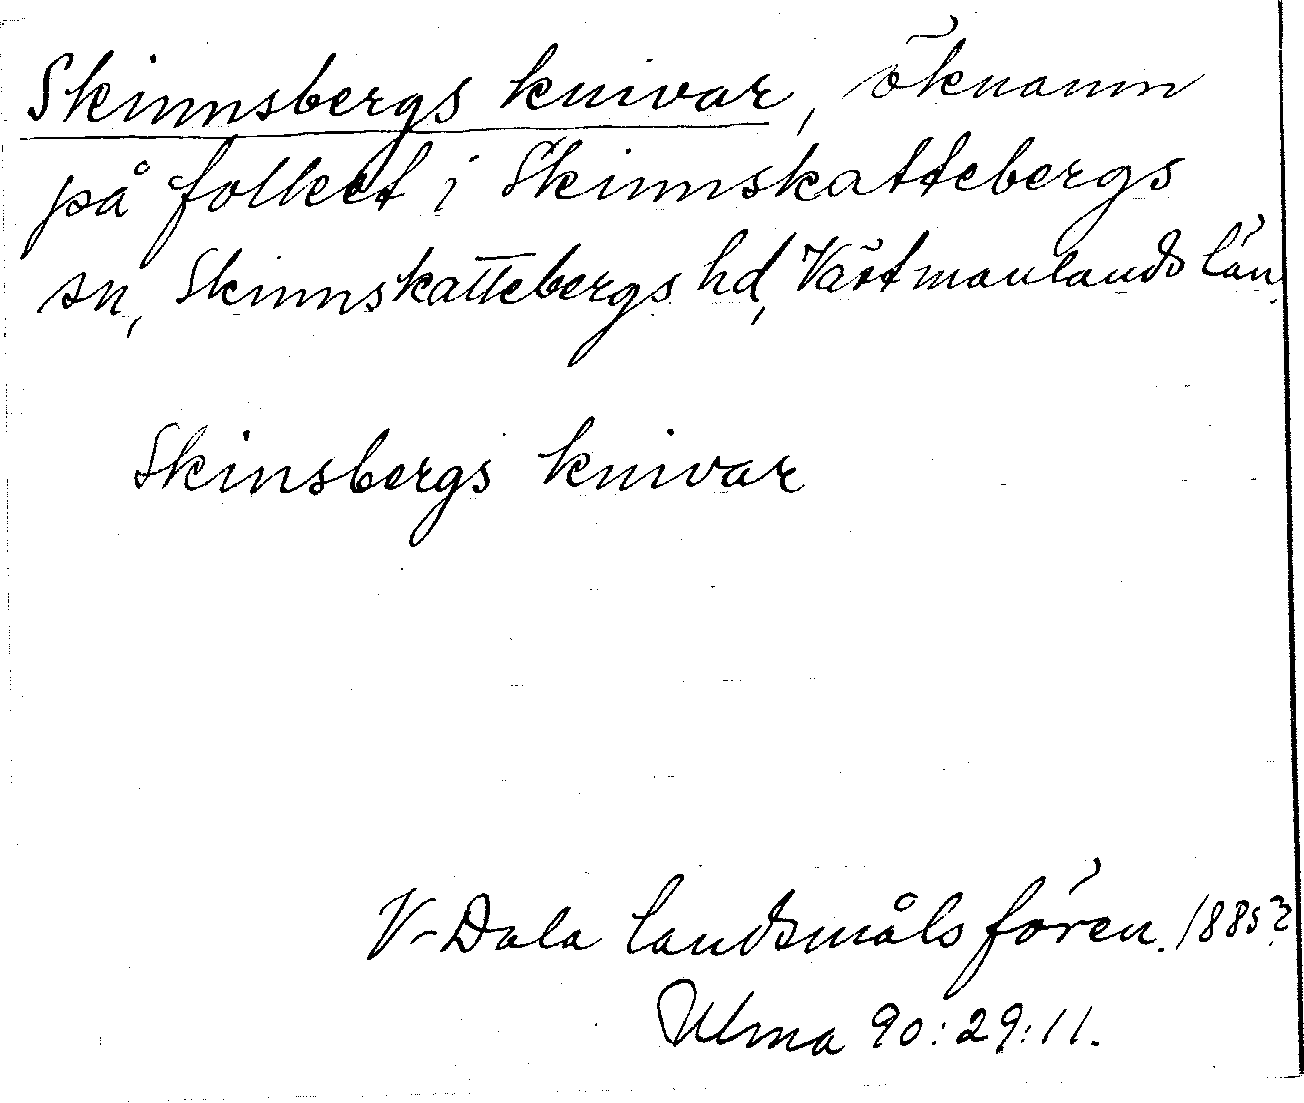 Skinnsbergs knivar, öknamn
på folket i Skinnskattebergs
sn, Skinnskattebergs hd, Västmanlands län.
Skinsbergs knivar
V-Dala landsmålsfören. 1885?
Ulma 90:29:11.